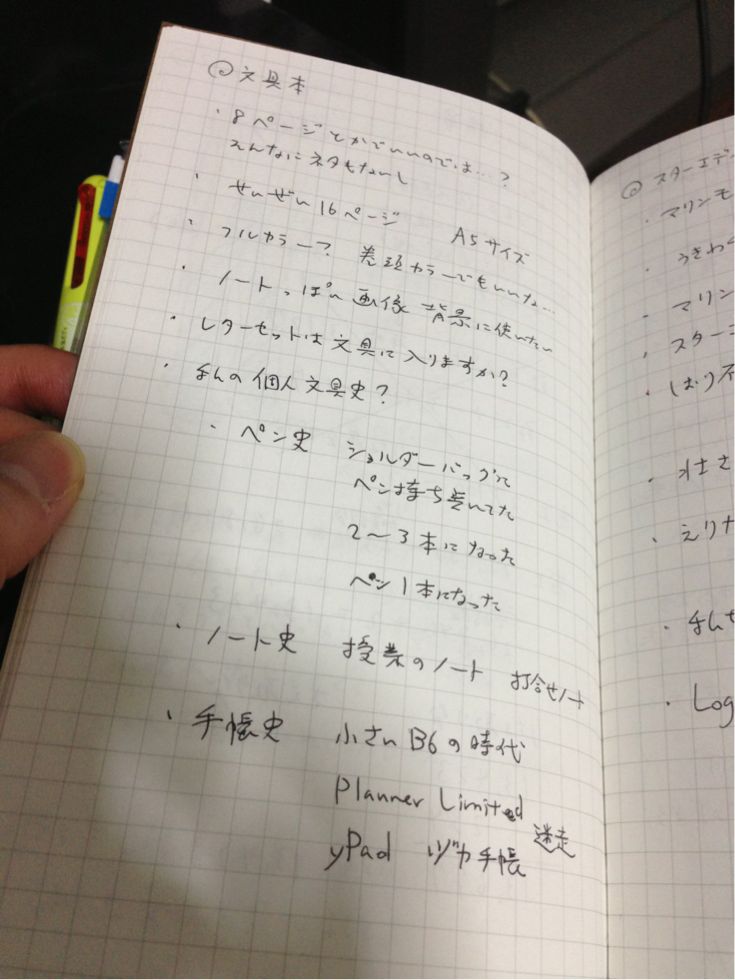 ◎文具本
・8ページとかでいいのでは…?
そんなにネタもないし
・せいぜい16ページ A5サイズ
・フルカラー? 巻頭カラーでもいいな…
・ノートっぽい画像 背景に使いたい
・レターセットは文具に入りますか?
・まんの個人文具史?
・ペン史 ショルダーバッグで
ペン持ち歩いてた
2〜3本になった
ペン1本になった
・ノート史 授業のノート 打合せノート
・手帳史 小さいB6の時代
Planner Limited
迷走
yPad ヅカ手帳
◎スターエデ
・マリンモ
・うきわ
・マリン
・スター
・しおり
・えりナ
・まんも
・Log